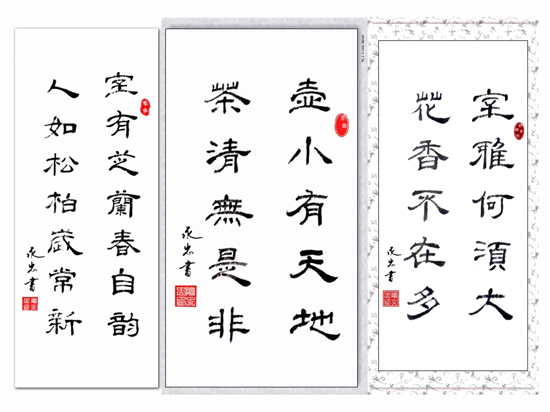 室有芝蘭春自韵
人如松柏歲常新
永忠書
壺小有天地
茶清無是非
永忠書
室雅何須大
花香不在多
永忠書